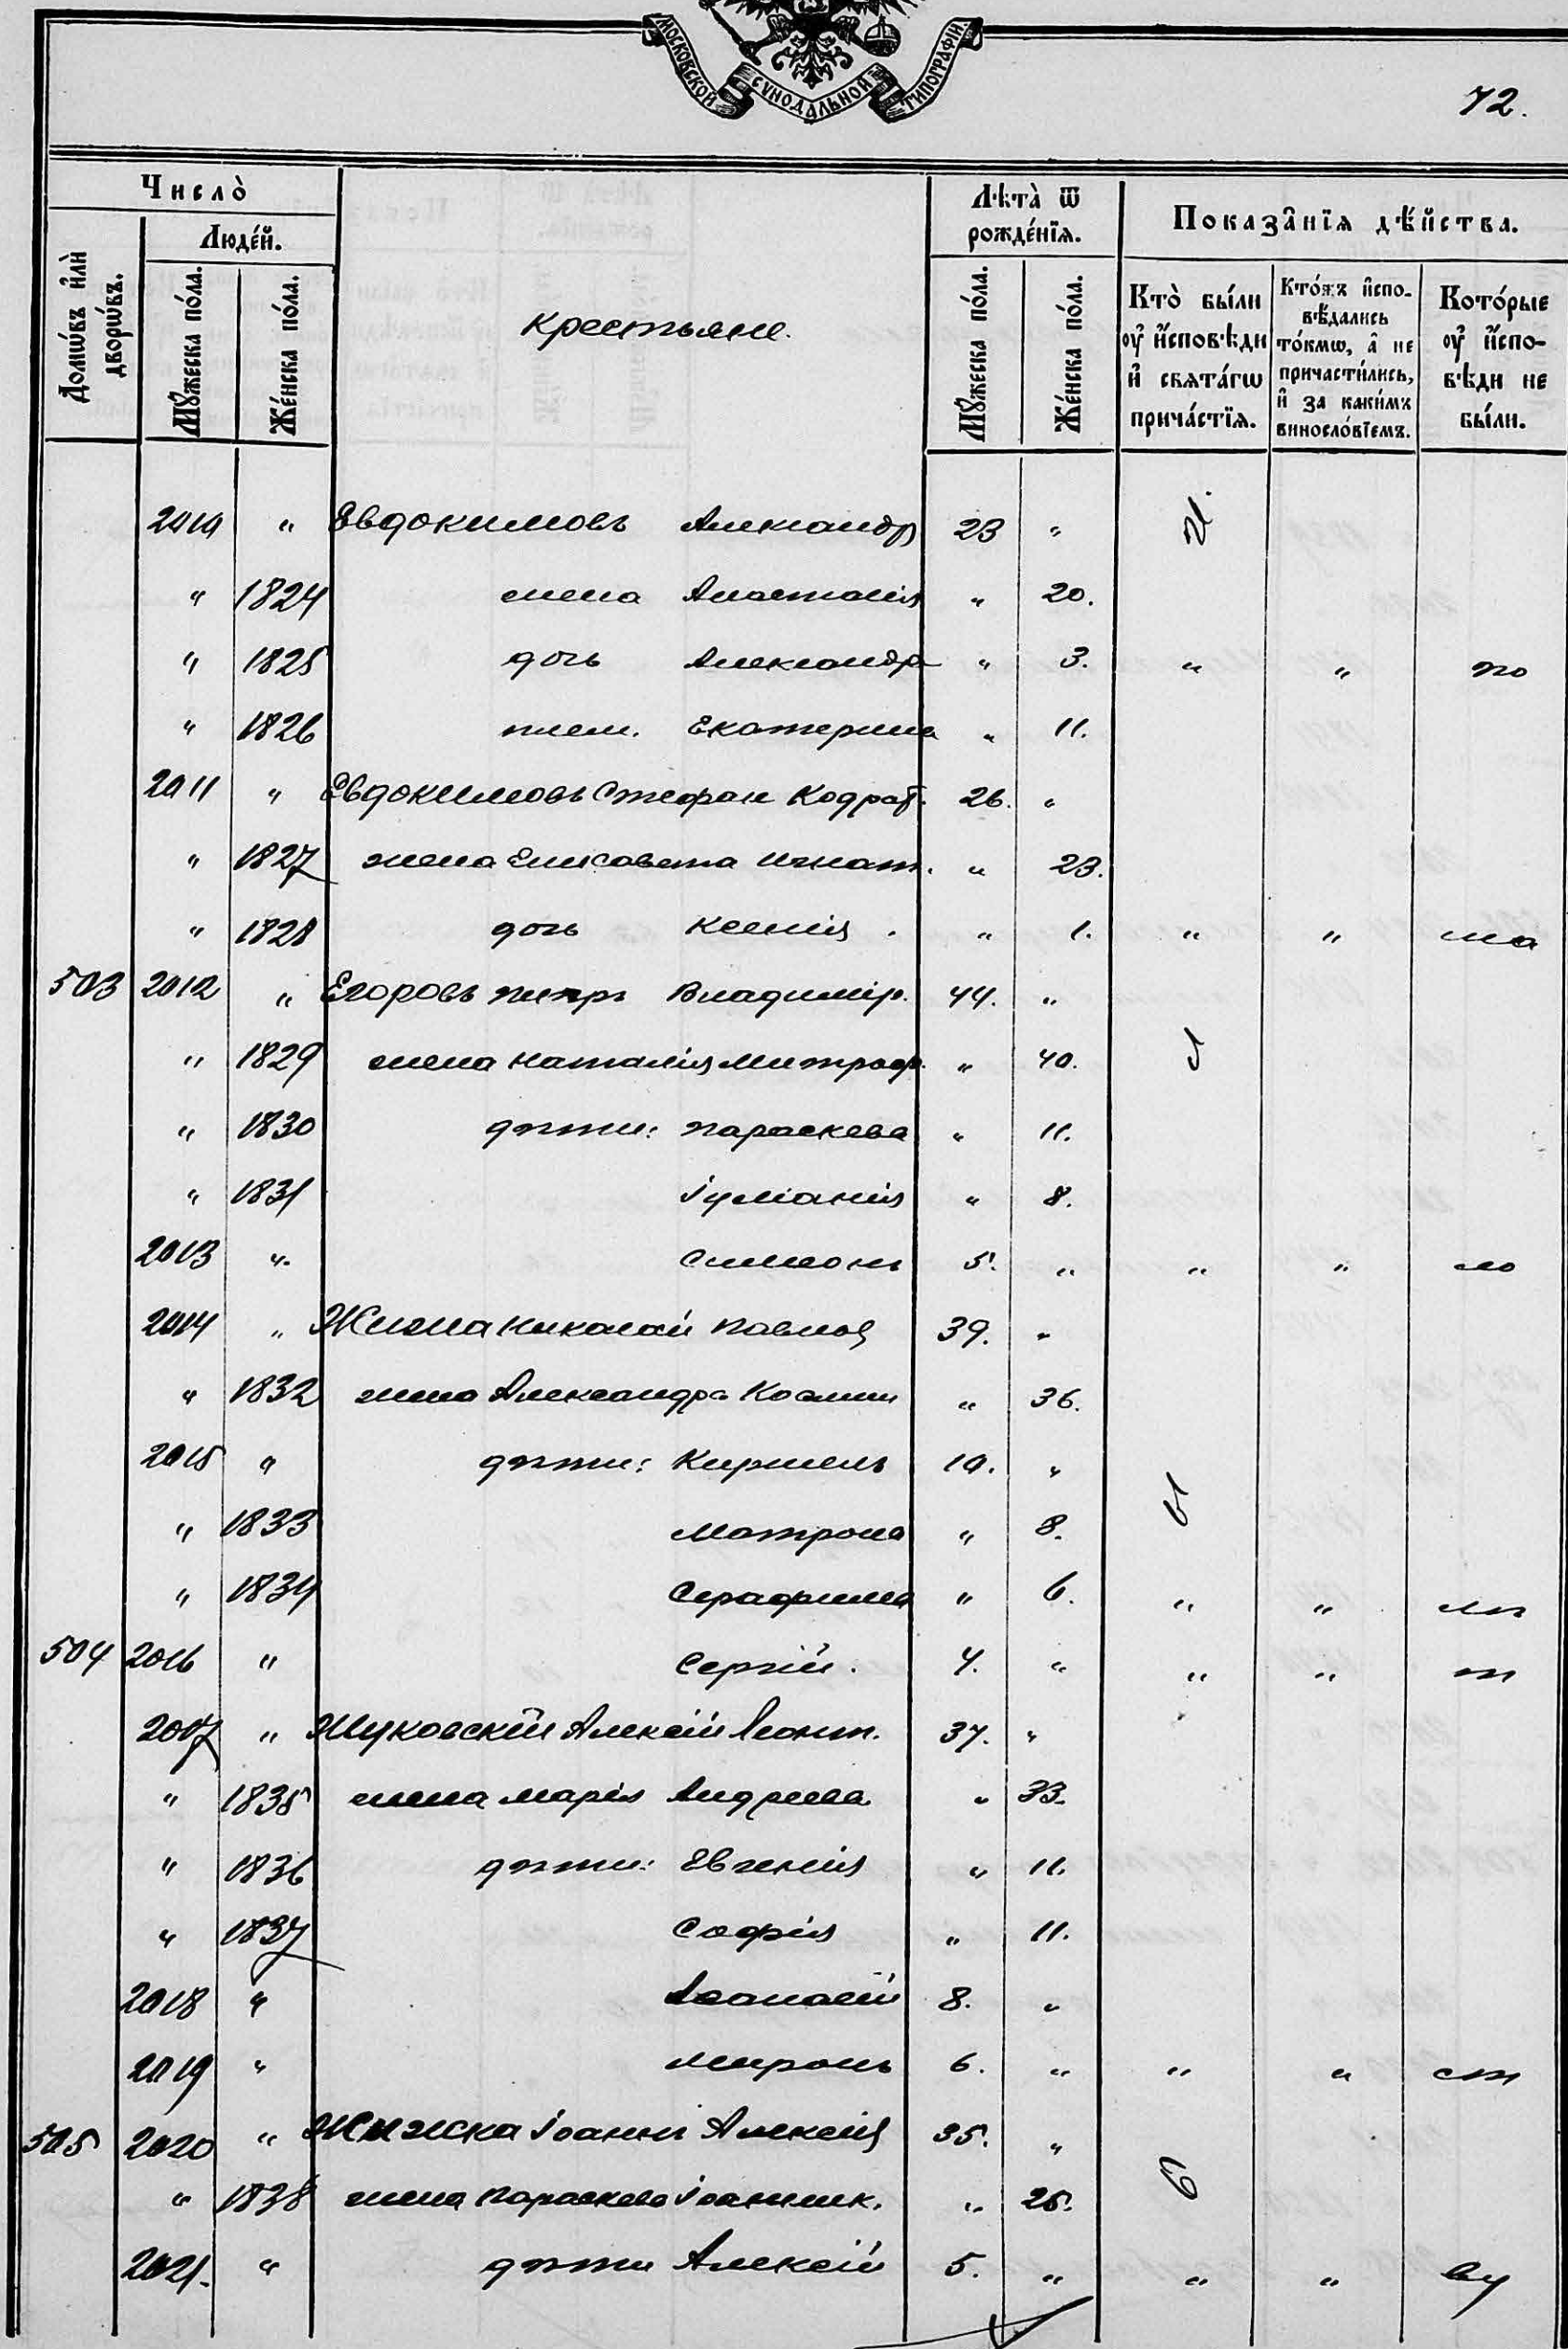 МОСКОВСКОЙ СУНОДАЛЬНОЙ ТИПОГРАФІИ.
72.
Число̀
Люде́й.
Домѡ́въ и҆лѝ дворѡ́въ.
Мꙋ́жеска по́ла.
Же́нска по́ла.
Крестьяне.
Лѣта̀ ѿ рожде́нїѧ.
Мꙋ́жеска по́ла.
Же́нска по́ла.
Показа̑нїѧ дѣ́йства.
Кто̀ бы́ли ᲂу҆ и҆́сповѣди и҆ свѧта́гѡ прича́стїѧ.
Кто́жъ и҆спо-вѣ́дались то́кмѡ, а҆ не причасти́лись, и҆ за каки́мъ виносло́вїемъ.
Кото́рые ᲂу҆ и҆́спо-вѣди не бы́ли.
2010 " Евдокимовъ Александр 23 "
" 1824 жена Анастасія " 20.
" 1825 дочь Александра " 3. " " 
" 1826 плем. Екатерина " 11.
2011 " Евдокимовъ Стефан Кодрат. 26. "
" 1827 жена Елисавета Игнат. " 23.
" 1828 дочь Ксенія . " 1. " " 
503 2012 " Егоровъ Петръ Владимір. 44. "
" 1829 жена Наталія Митроф. " 40.
" 1830 дѣти: Параскева " 11.
" 1831 Іуліанія " 8.
2013 ". Симеонъ 5. " " " 
2014 " Николай Павлов 39. "
" 1832 жена Александра Козмин " 36.
2015 " дѣти: Кириллъ 10. "
" 1833 Матрона " 8.
" 1834 Серафима " 6. " " 
504 2016 " Сергій. 4. " " " 
2017 " Жуковскій Алексій Леонт. 37. "
" 1835 жена Марія Андреева " 33.
" 1836 дѣти: Евгенія " 11.
" 1837 Софія " 11.
2018 " Аѳанасій 8. "
2019 " Миронъ 6. " " " 
505 2020 " Іоаннъ Алексіев 35. "
" 1838 жена Параскева Іоанник. " 25.
2021. " дѣти Алексій 5. " " "